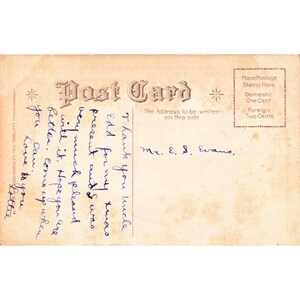 Post Card
The Address to be written
on this side
Place Postage
Stamp Here
Domestic
One Cent
Foreign
Two Cents
Mr. E. S. Evans,
Thank you Uncle
Eld for my Xmas
present and I was
very much pleased
with it. Hope you are
better. come up when
you can.
Love to you
Lottie